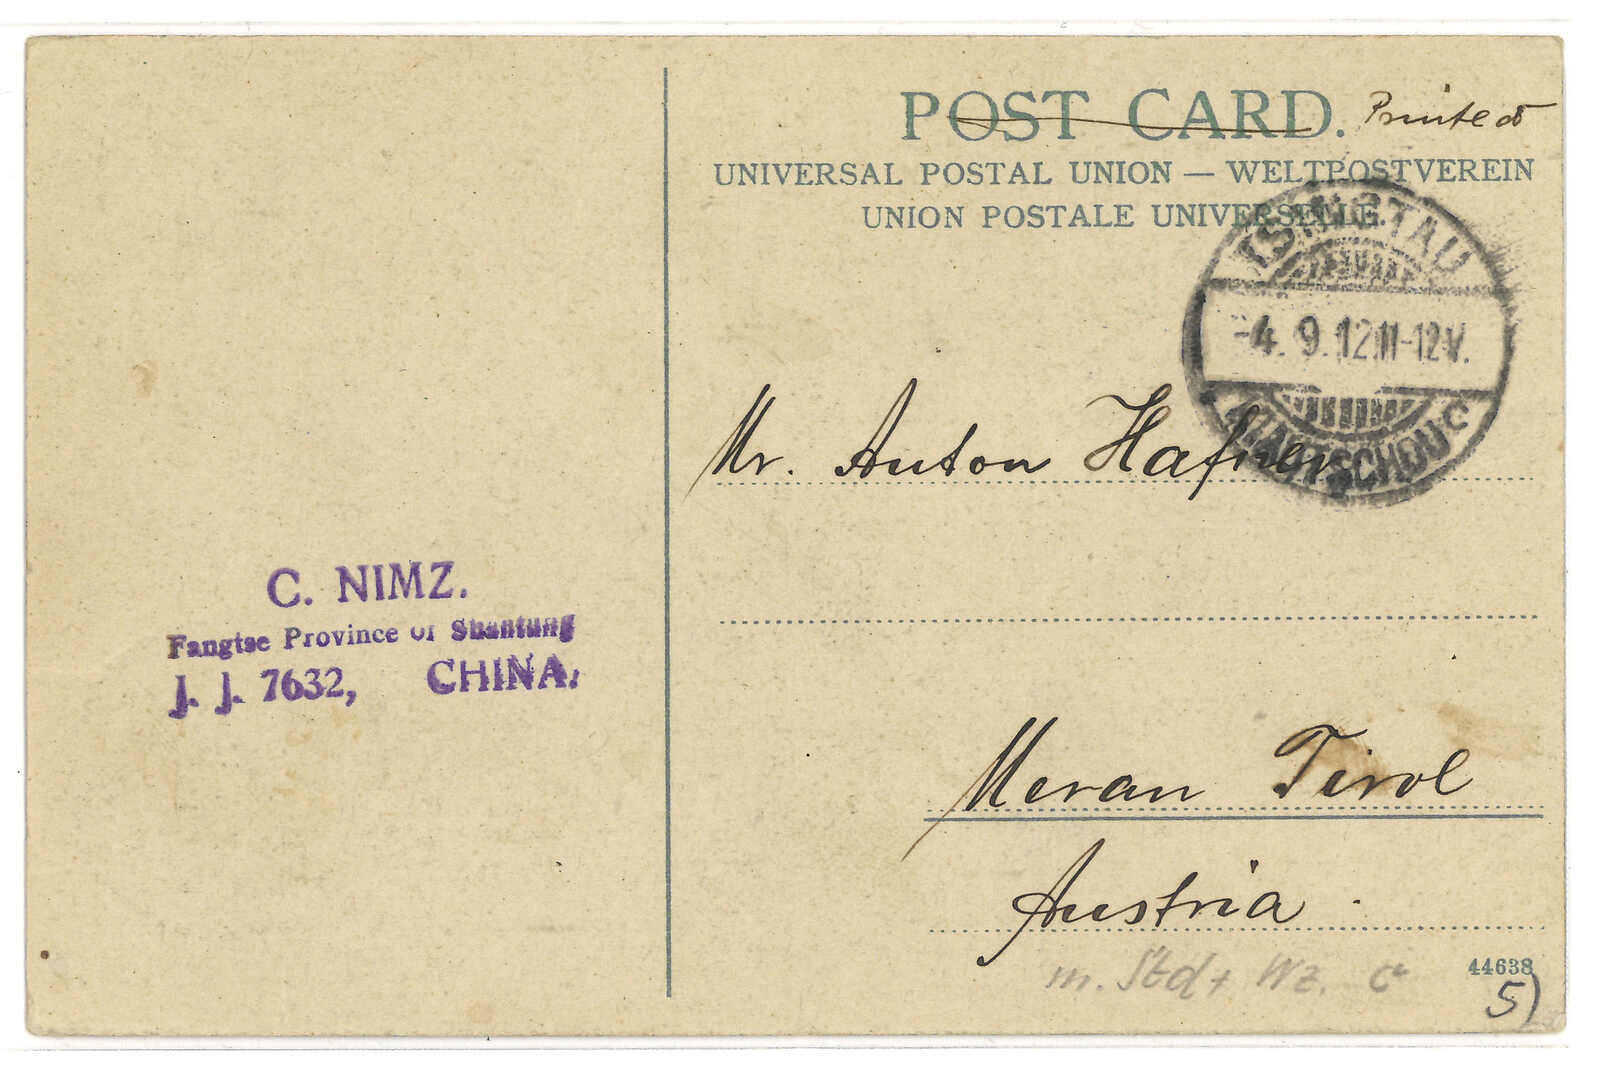 POST CARD. Printed
UNIVERSAL POSTAL UNION — WELTPOSTVEREIN
UNION POSTALE UNIVERSELLE.
TSINGTAU
-4. 9. 12 11-12 V.
KIAUTSCHOU
c
Mr. Anton Hafner,
C. NIMZ.
Fangtse Province of Shantung
J. J. 7632, CHINA.
Meran Tirol
Austria.
44638
m. Std + Wz. c
5)